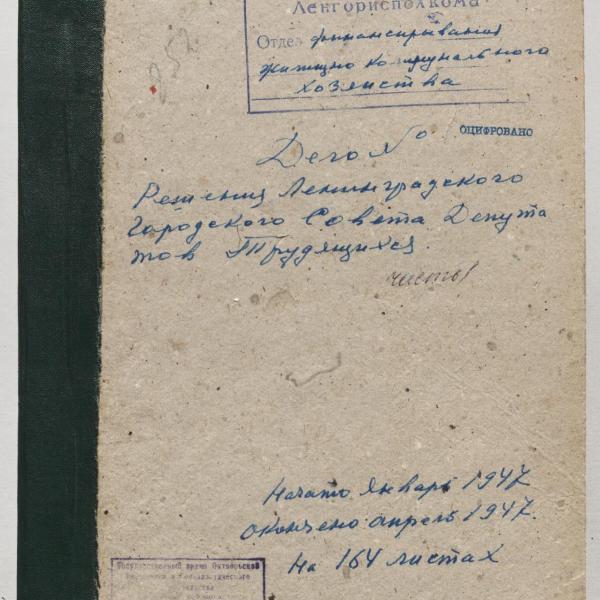 Ленгорисполкома
Отдел финансирования
жилищно коммунального
хозяйства
ОЦИФРОВАНО
Дело №
Решения Ленинградского
Городского Совета Депута
тов Трудящихся.
чисты
Начато январь 1947
окончено апрель 1947.
На 164 листах
Государственный архив Октябрьской